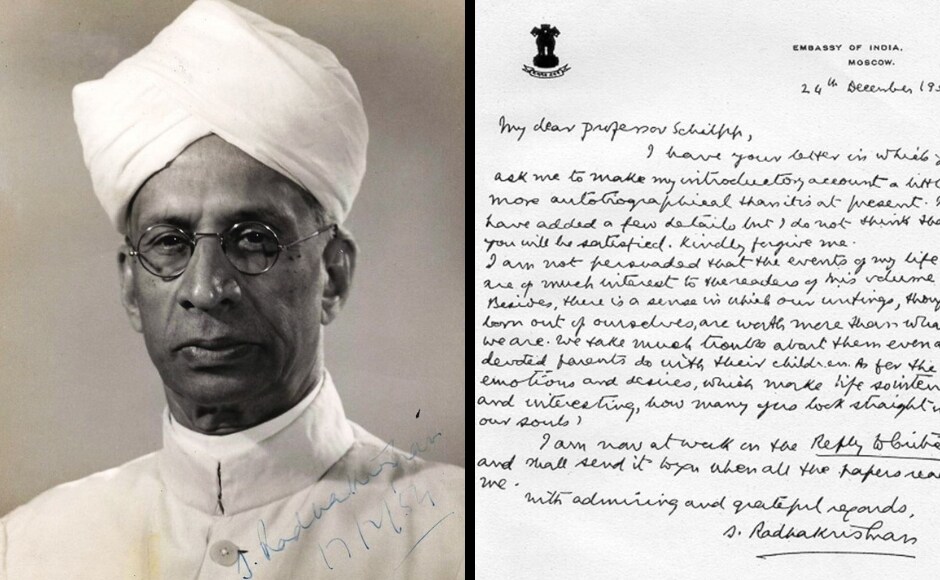 S. Radhakrishnan
17/12/54
EMBASSY OF INDIA,
MOSCOW.
24th December 195
My dear Professor Schilpp,
I have your letter in which y
ask me to make my introductory account a litt
more autobiographical than it is at present.
have added a few details but I do not think tha
you will be satisfied. Kindly forgive me.
I am not persuaded that the events of my life
are of much interest to the readers of this volume
Besides, there is a sense in which our writings, thoug
born out of ourselves, are worth more than wha
we are. We take much trouble about them even a
devoted parents do with their children. As for the
emotions and desires, which make life so inten
and interesting, how many of us look straight in
our souls?
I am now at work on the Reply to Critic
and shall send it to you when all the papers reac
me.
With admiring and grateful regards,
S. Radhakrishnan